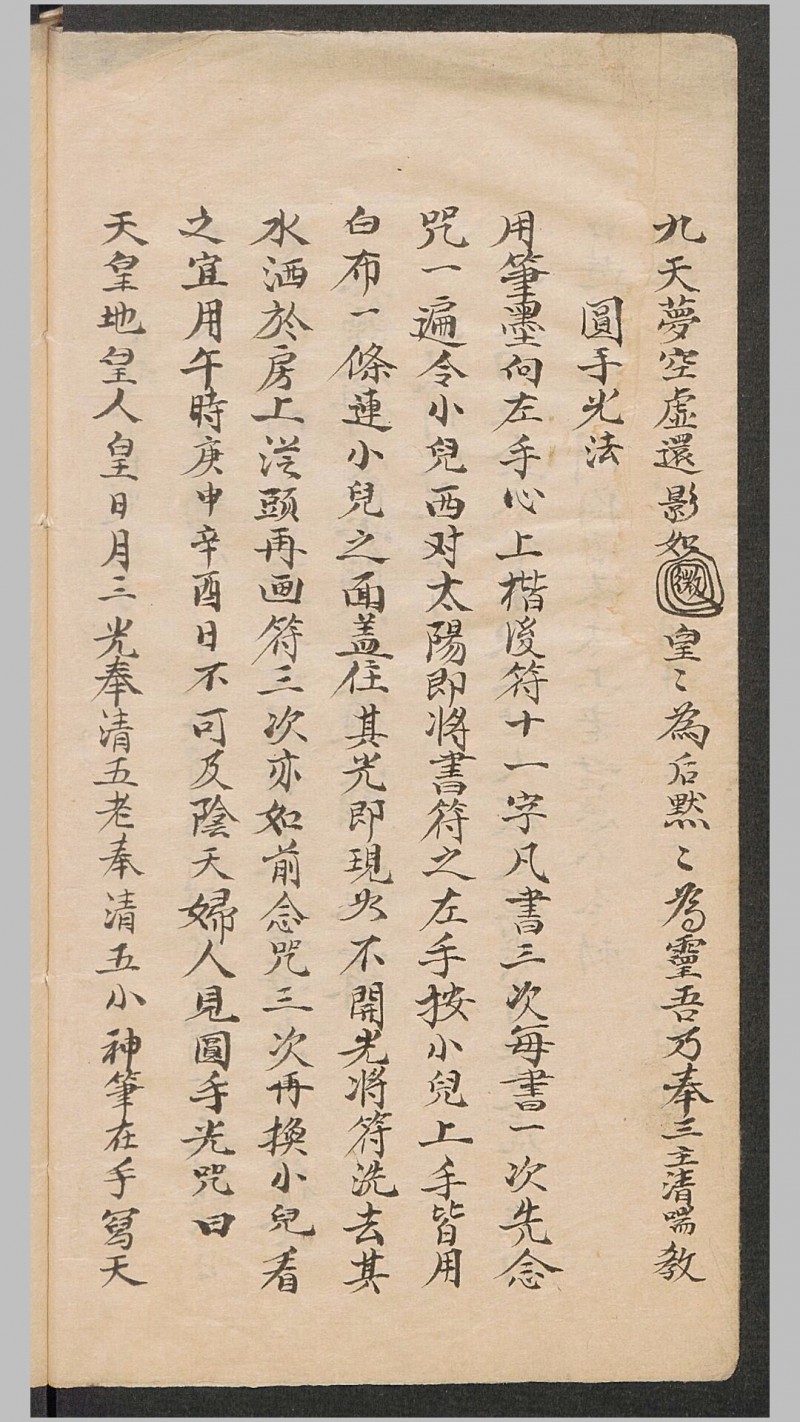 九天夢空虛還影如㘓皇〻為后黙〻為靈吾乃奉三主清喘教
圓手光法
用筆墨向左手心上楷後符十一字凡書三次每書一次先念
咒一遍令小兒西对太陽即將書符之左手按小兒上手皆用
白布一條連小兒之面盖住其光即現如不開光將符洗去其
水洒於房上從頭再画符三次亦如前念咒三次再換小兒看
之宜用午時庚申辛酉日不可及陰天婦人見圓手光咒曰
天皇地皇人皇日月三光奉清五老奉清五小神筆在手寫天